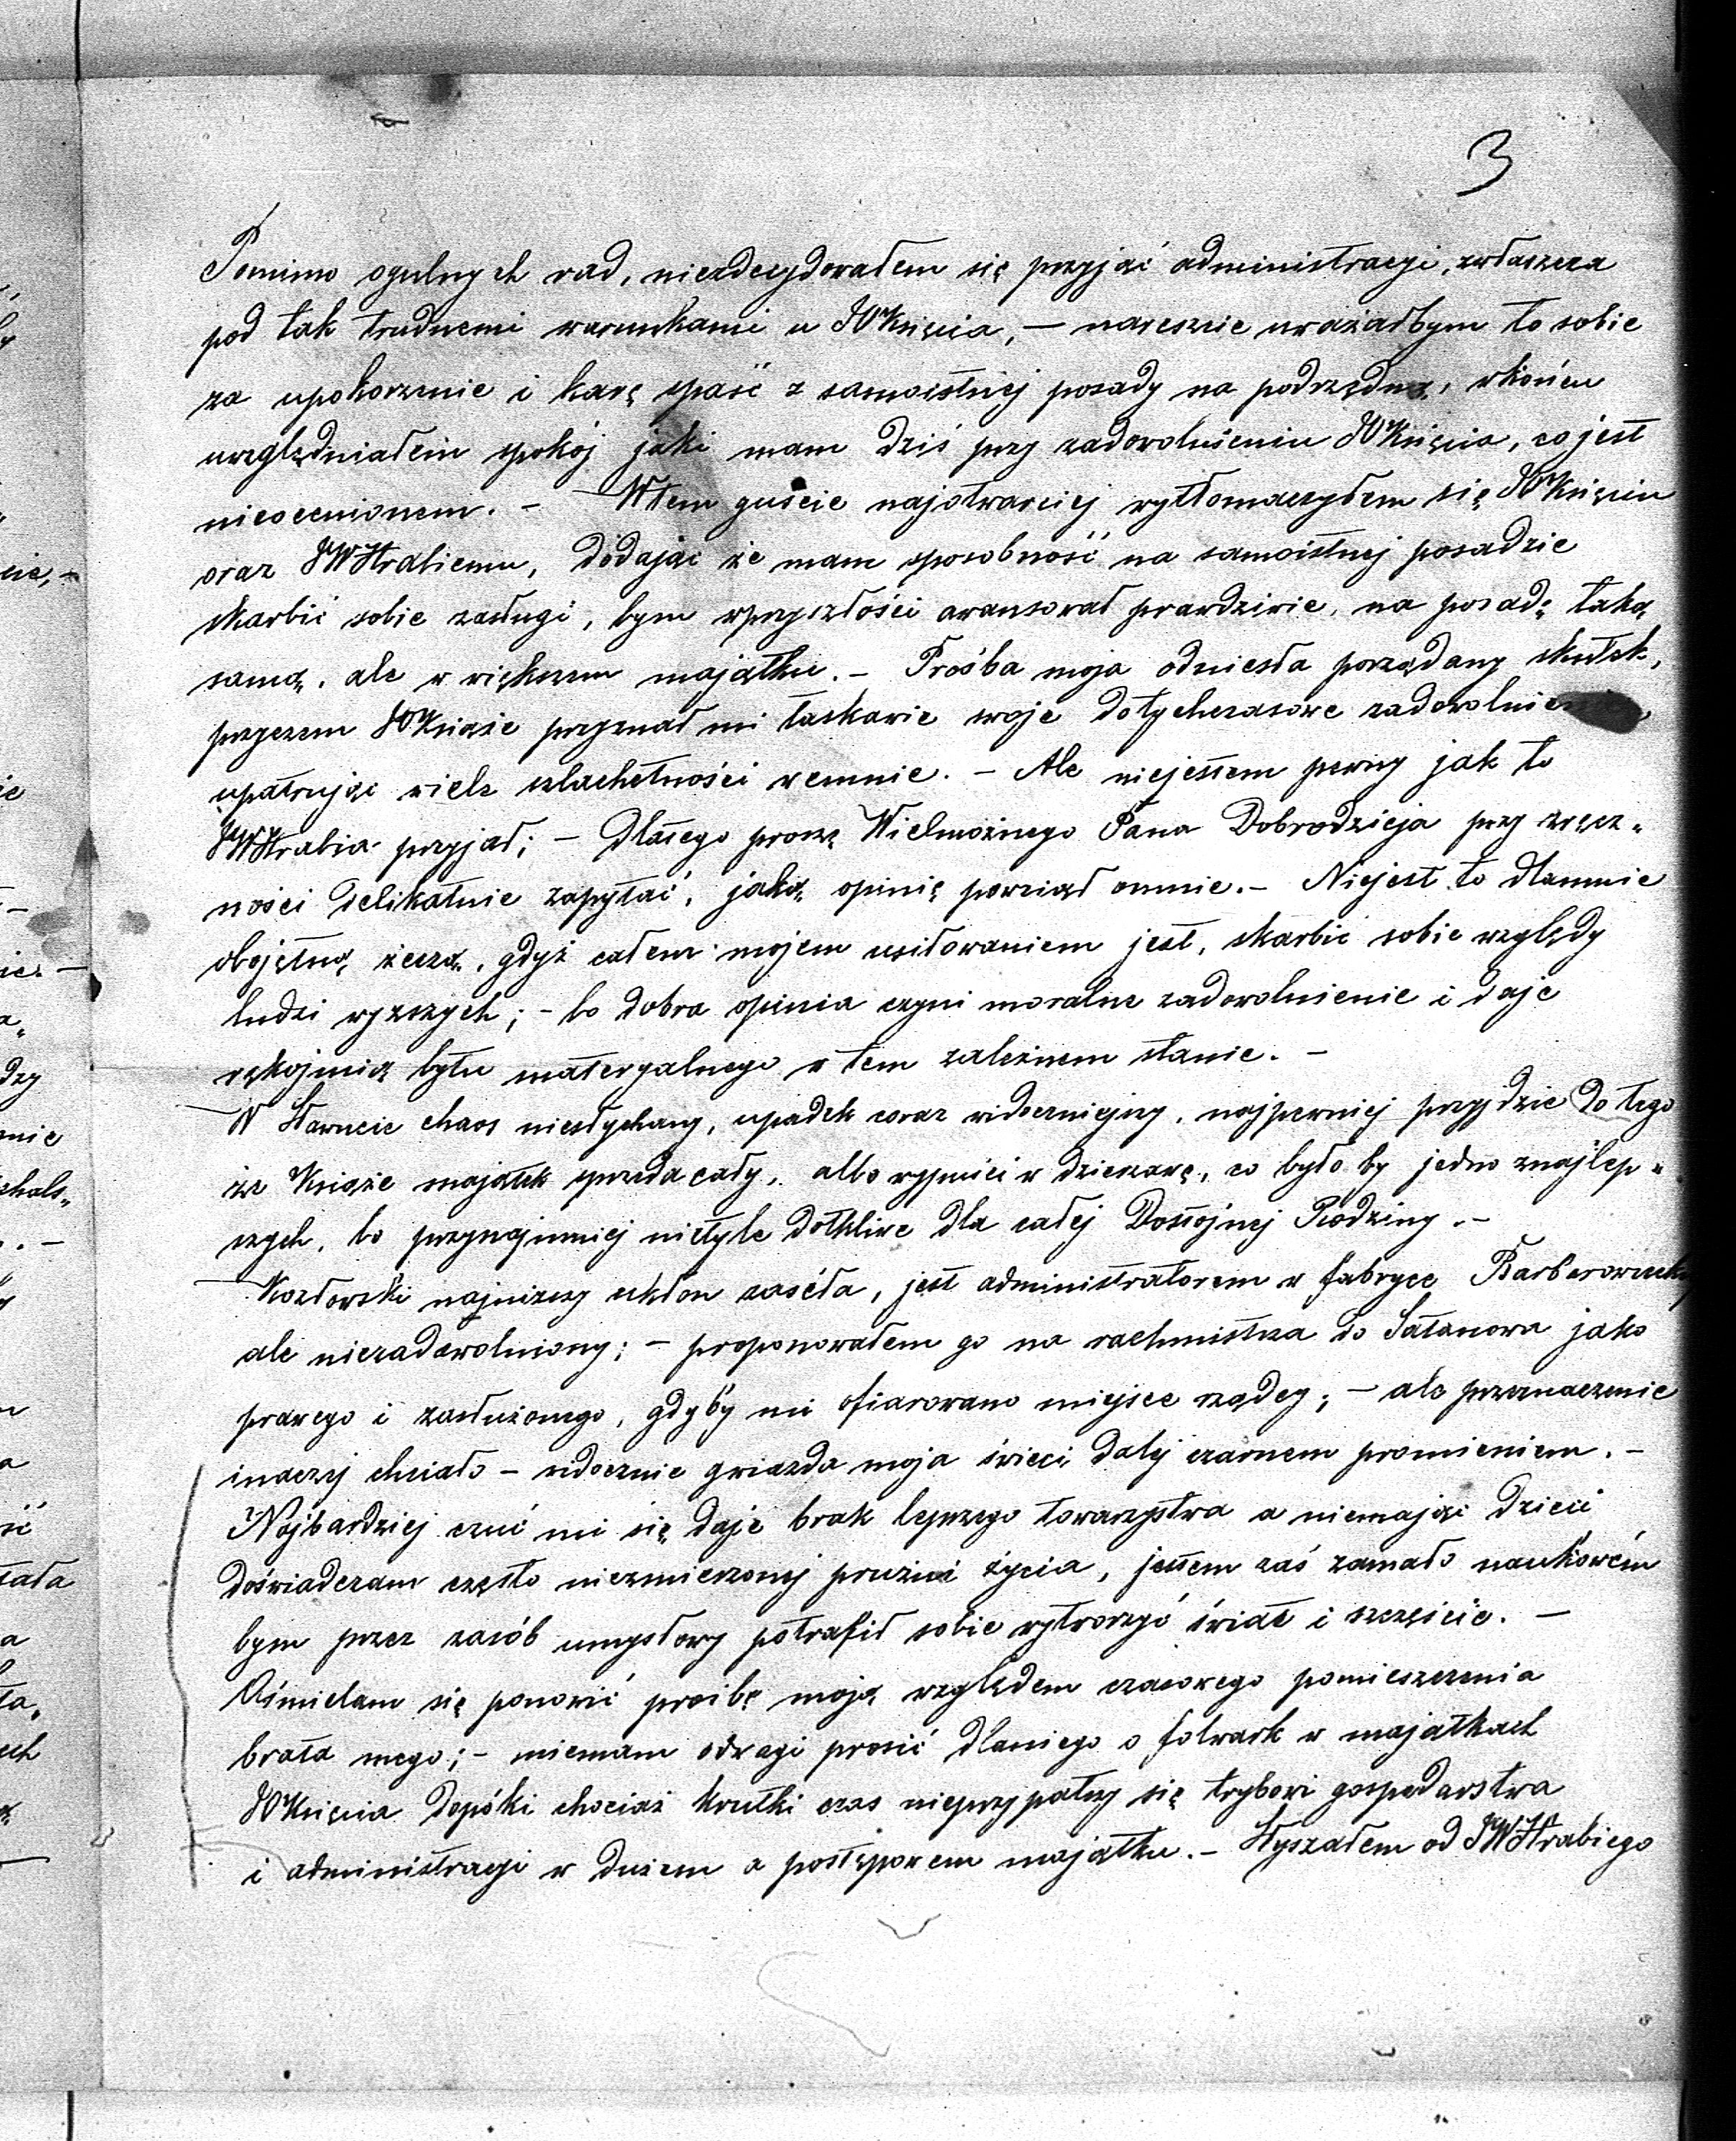 3
Pomimo ogulnych rad, niezdecydowałem się przyjąć administracyi, zwłaszcza
pod tak trudnemi warunkami u JOKsięcia, — nareszcie uważałbym to sobie
za upokorzenie i karę spaść z samoistnej posady na podrzędną, wkońcu
uwzględniałem spokój jaki mam dziś przy zadowolnieniu JOKsięcia, co jest
nieocenionem. — Wtem guście najotwarciej wytłomaczyłem się JOKsięciu
oraz JWHrabiemu, dodając że mam sposobność na samoistnej posadzie
skarbić sobie zasługi, bym wprzyszłości awansował prawdziwie, na posadę taką
samą, ale w większem majątku. — Prośba moja odniesła porządany skutek,
przyczem JOKsiąże przyznał mi łaskawie swoje dotychczasowe
upatrując wiele szlachetności wemnie. — Ale niejestem pewny jak to
JWHrabia przyjął; — Dlatego proszę Wielmożnego Pana Dobrodzieja przy zręcz„
ności delikatnie zapytać, jaką opinię powziął omnie. — Niejest to dlamnie
obojętną żeczą, gdyż całem mojem usiłowaniem jest, skarbić sobie względy
ludzi wyższych; — bo dobra opinia czyni moralne zadowolnienie i daje
rękojmią bytu materyalnego w tem zależnem stanie. —
W chaos niesłychany, upadek coraz widoczniejszy, najpewniej przyjdzie do tego
że Książe majątek sprzeda cały, albo wypuści w dzierzawę, co było by jedno znajlep„
szych, bo przynajmniej nietyle dotkliwe dla całej Dostojnej Rodziny. —
Kozłowski najniższy ukłon zaséła, jest administratorem w fabryce
ale niezadowolniony; — proponowałem go na rachmistrza do Satanowa jako
prawego i zasłużonego, gdyby mi ofiarowano miejsce rządcy; — ale przeznaczenie
inaczej chciało — widocznie gwiazda moja świeci dalej czarnem promieniem. —
Najbardziej czuć mi się daje brak lepszego towarzystwa a niemając dzieci
doświadczam często niezmierzonej pruzni życia, jestem zaś zamało naukowém
bym przez zasób umysłowy potrafił sobie wytworzyć świat i szczęście. —
Ośmielam się ponowić prośbę moją względem czasowego pomieszczenia
brata mego; — niemam odwagi prosić dlaniego o folwark w majątkach
JOKsięcia dopóki chociaż krutki czas nieprzypatrzy się trybowi gospodarstwa
i administracyi w dużem a postępowem majątku. — Słyszałem od JWHrabiego